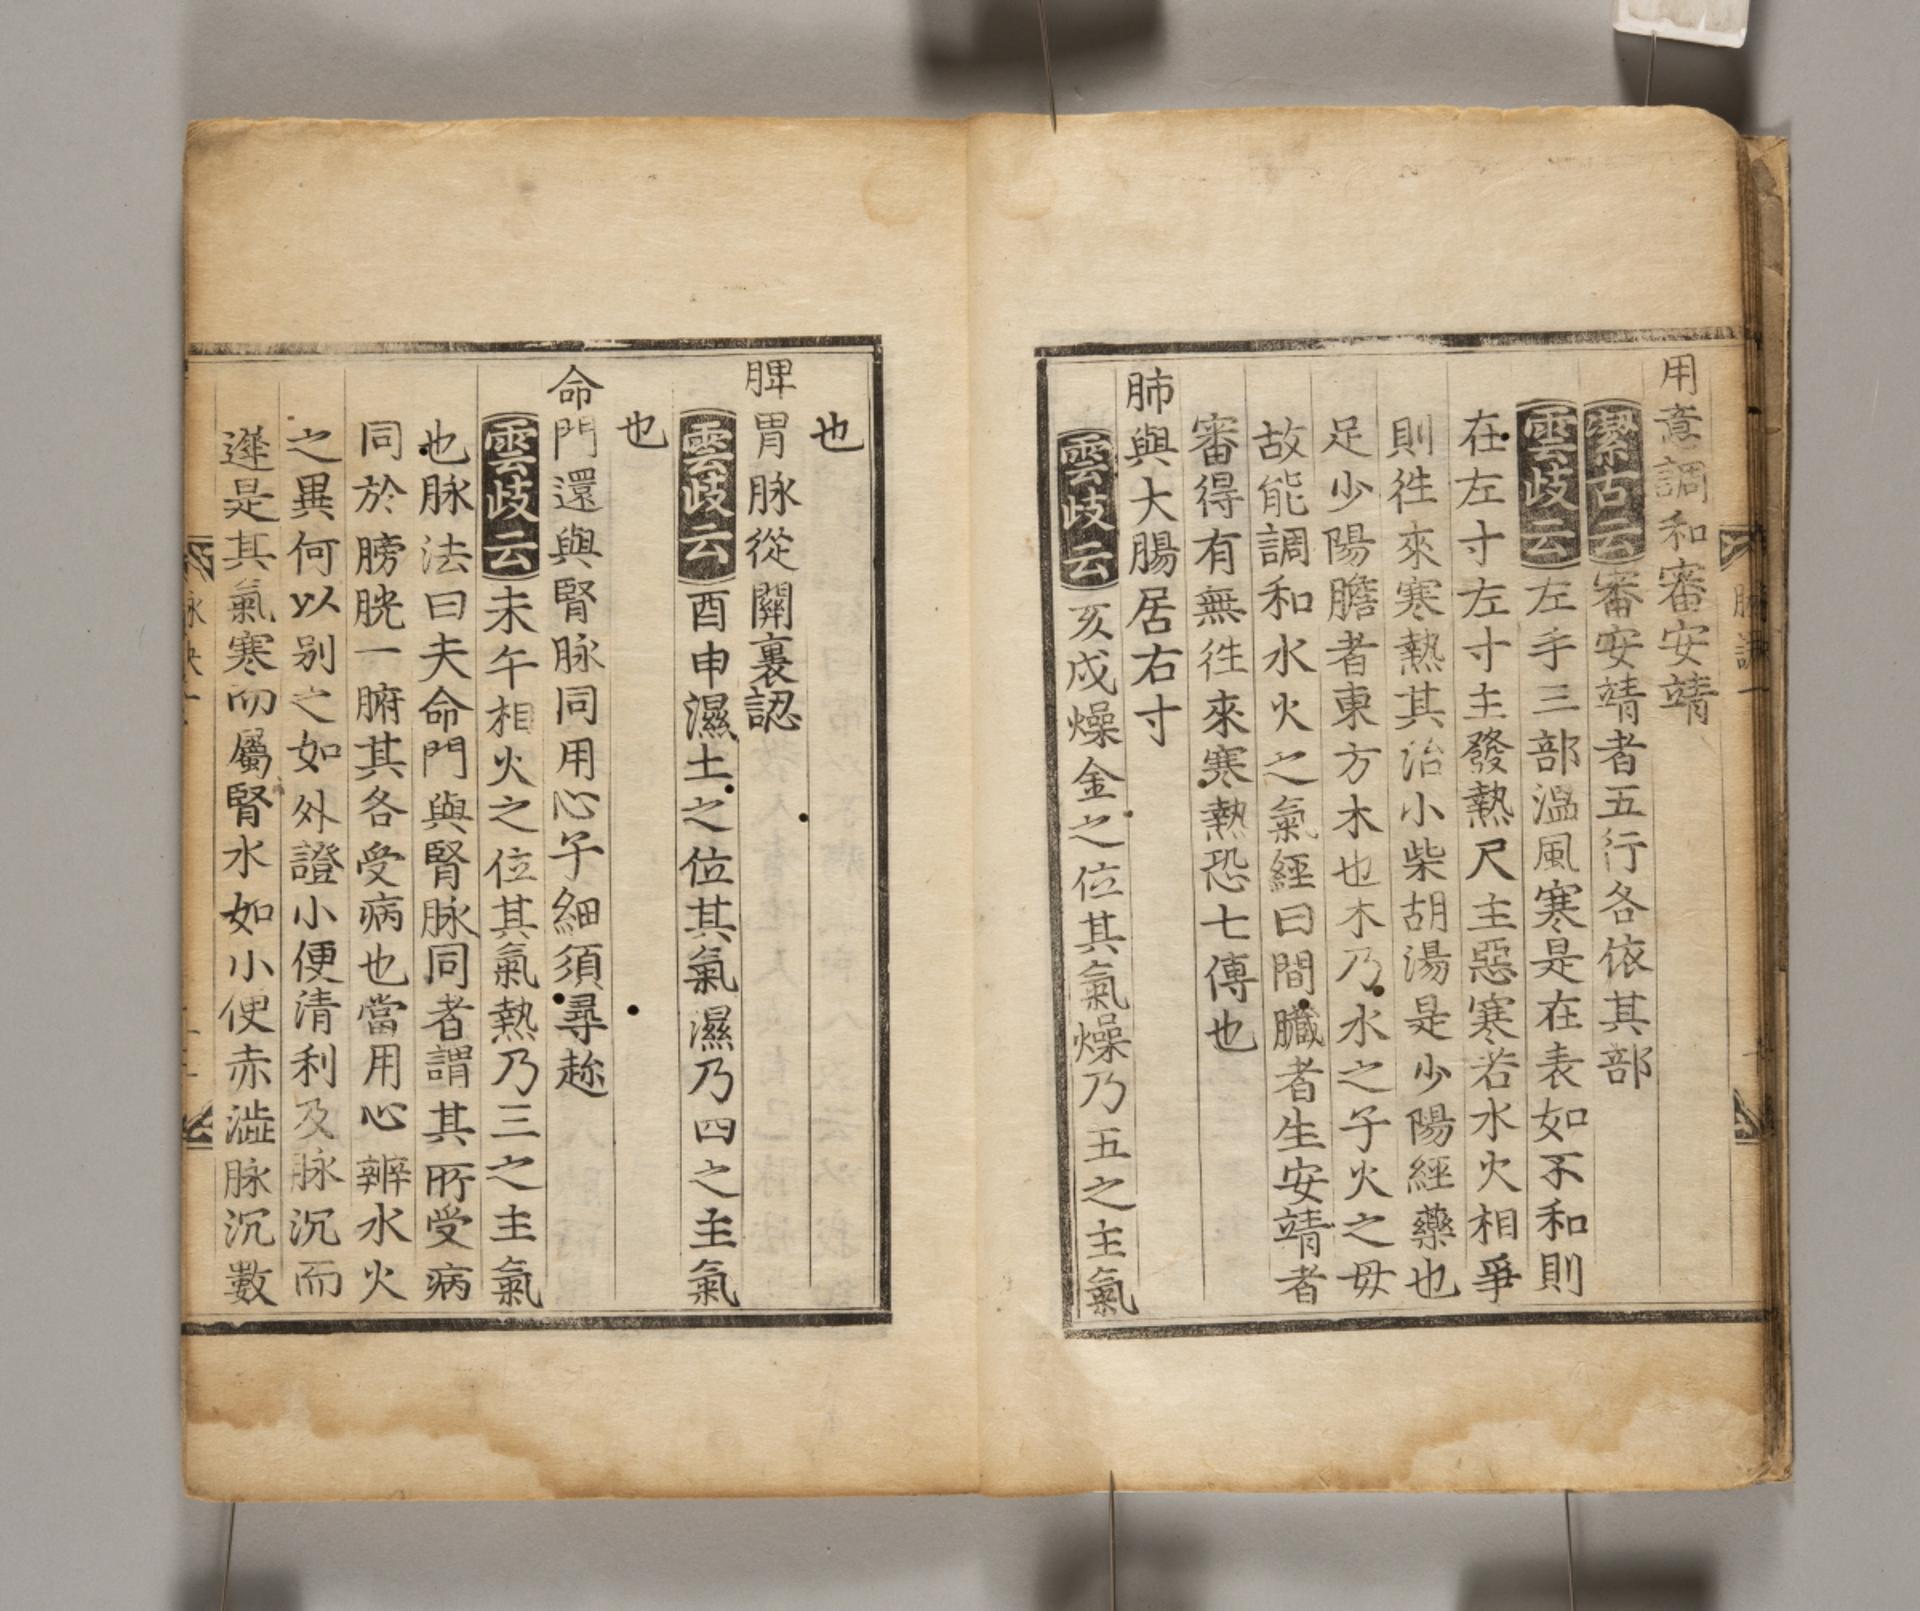 用意調和審安靖
潔古云審安靖者五行各依其部
雲岐云左手三部溫風寒是在表如不和則
在左寸左寸主發熱尺主惡寒若水火相爭
則徃來寒熱其治小柴胡湯是少陽經藥也
足少陽膽者東方木也木乃水之子火之母
故能調和水火之氣經曰間臓者生安靖者
審得有無徃來寒熱恐七傳也
肺與大腸居右寸
雲岐云亥戌燥金之位其氣燥乃五之主氣
也
脾胃脉從關裏認
雲岐云酉申濕土之位其氣濕乃四之主氣
也
命門還與腎脉同用心子細須尋趂
雲岐云未午相火之位其氣熱乃三之主氣
也脉法曰夫命門與腎脉同者謂其所受病
同於膀胱一腑其各受病也當用心辨水火
之異何以别之如外證小便清利及脉沉而
遲是其氣寒而屬腎水如小便赤澁脉沉數